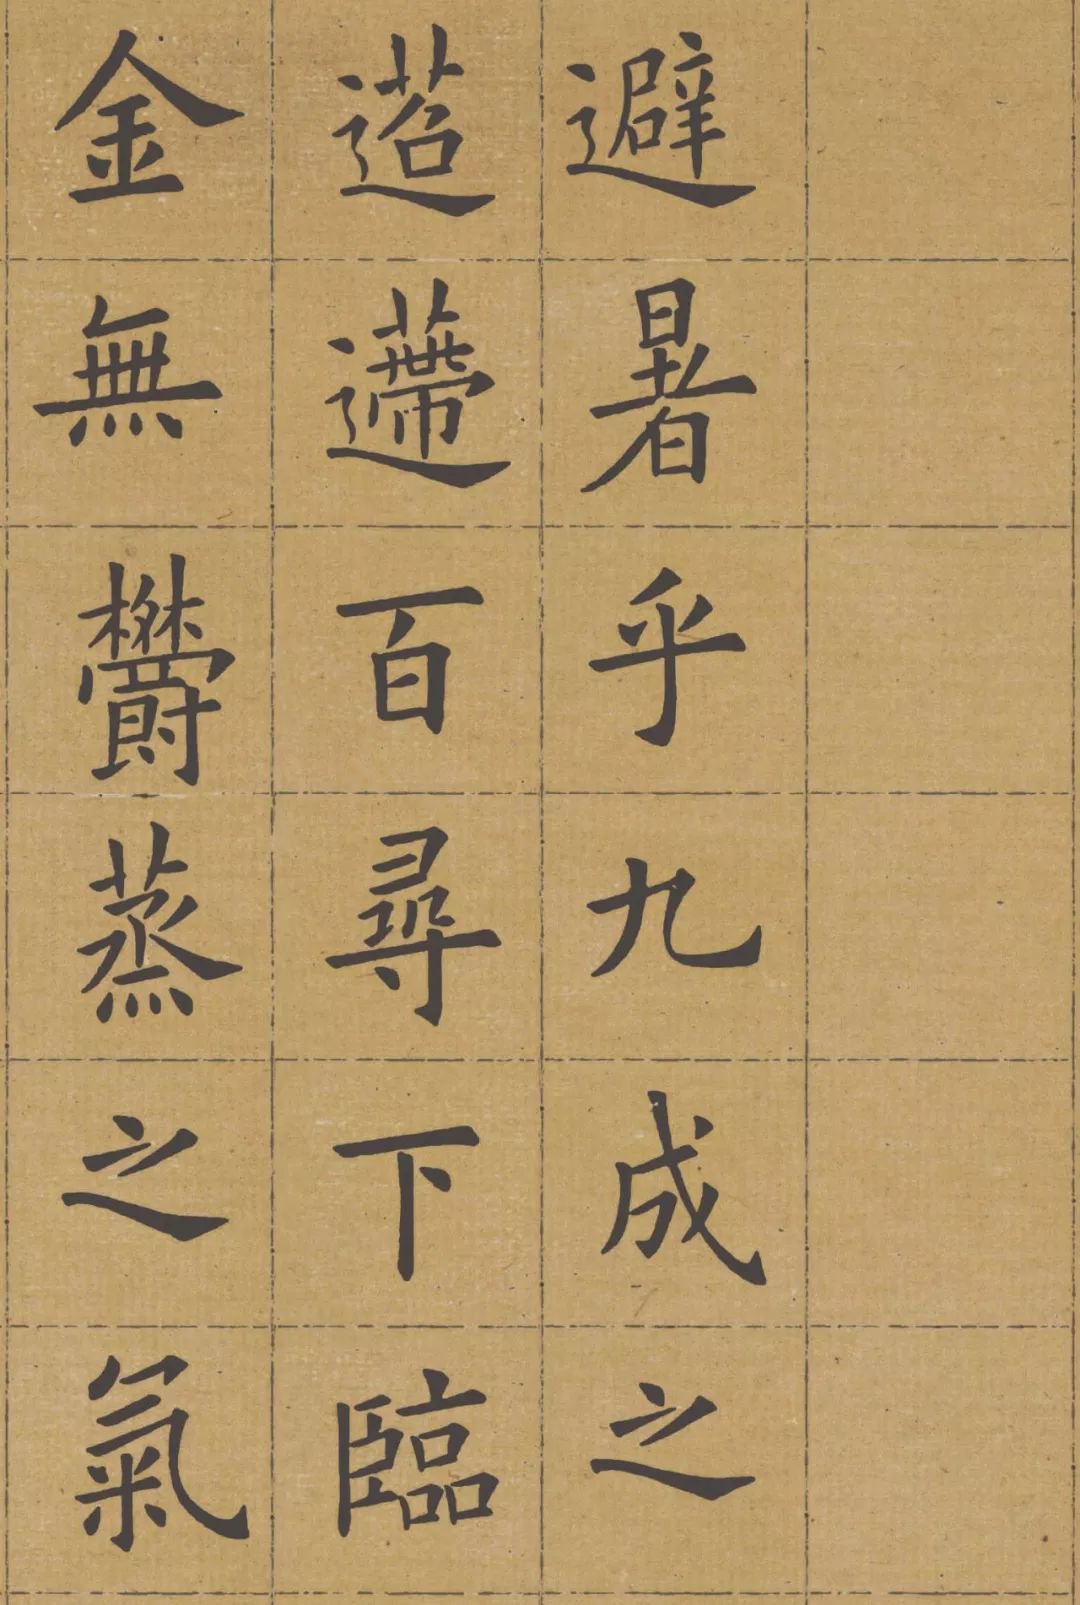 避暑乎九成之
迢遰百尋下臨
金無欝蒸之氣